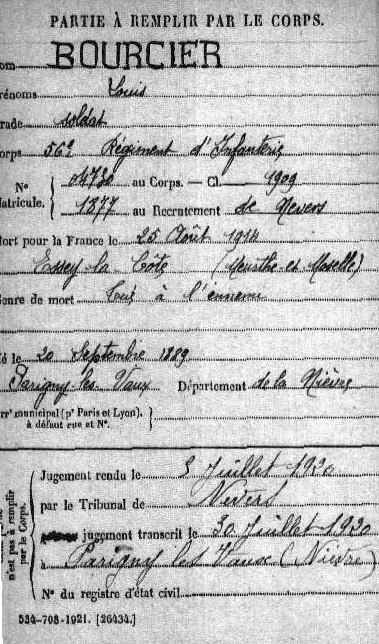 PARTIE À REMPLIR PAR LE CORPS.
om BOURCIER
rénoms Louis
rade soldat
orps 56e Régiment d'Infanterie
N° 04730 au Corps. — Cl. 1909
atricule. 1377 au Recrutement de Nevers
ort pour la France le 25 Août 1914
Essey la Côte (Meurthe et Moselle)
enre de mort Tué à l'ennemi
é le 20 Septembre 1889
Parigny-les-Vaux Département de la Nièvre
rr municipal (pr Paris et Lyon),
à défaut rue et N°.
Jugement rendu le 3 Juillet 1920
par le Tribunal de Nevers
jugement transcrit le 30 Juillet 1920
à Parigny les Vaux (Nièvre)
N° du registre d'état civil
n'est pas à remplir
par le Corps.
534-708-1921. [26434.]